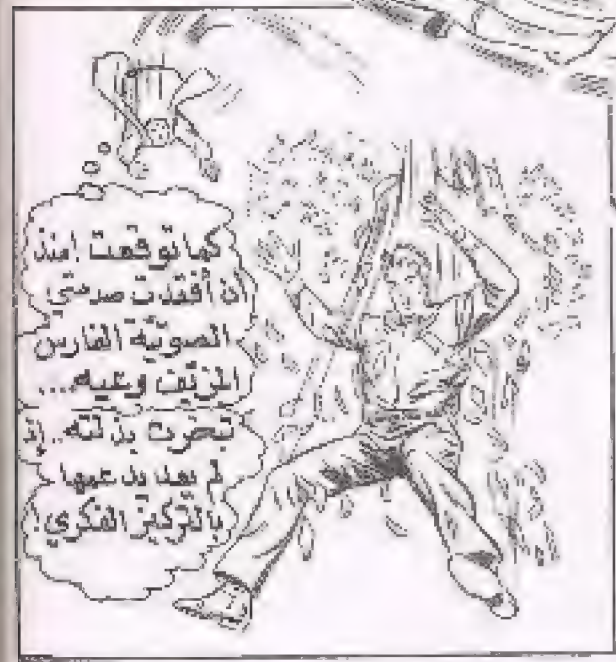 كما توقعت! منذ
أن أفقدت صدمتي
الصوتيّة الفارس
المزيّف وعيه...
تبخّرت بذلته.. إذ
لم يعد يدعمها
بالتّركيز الفكري!